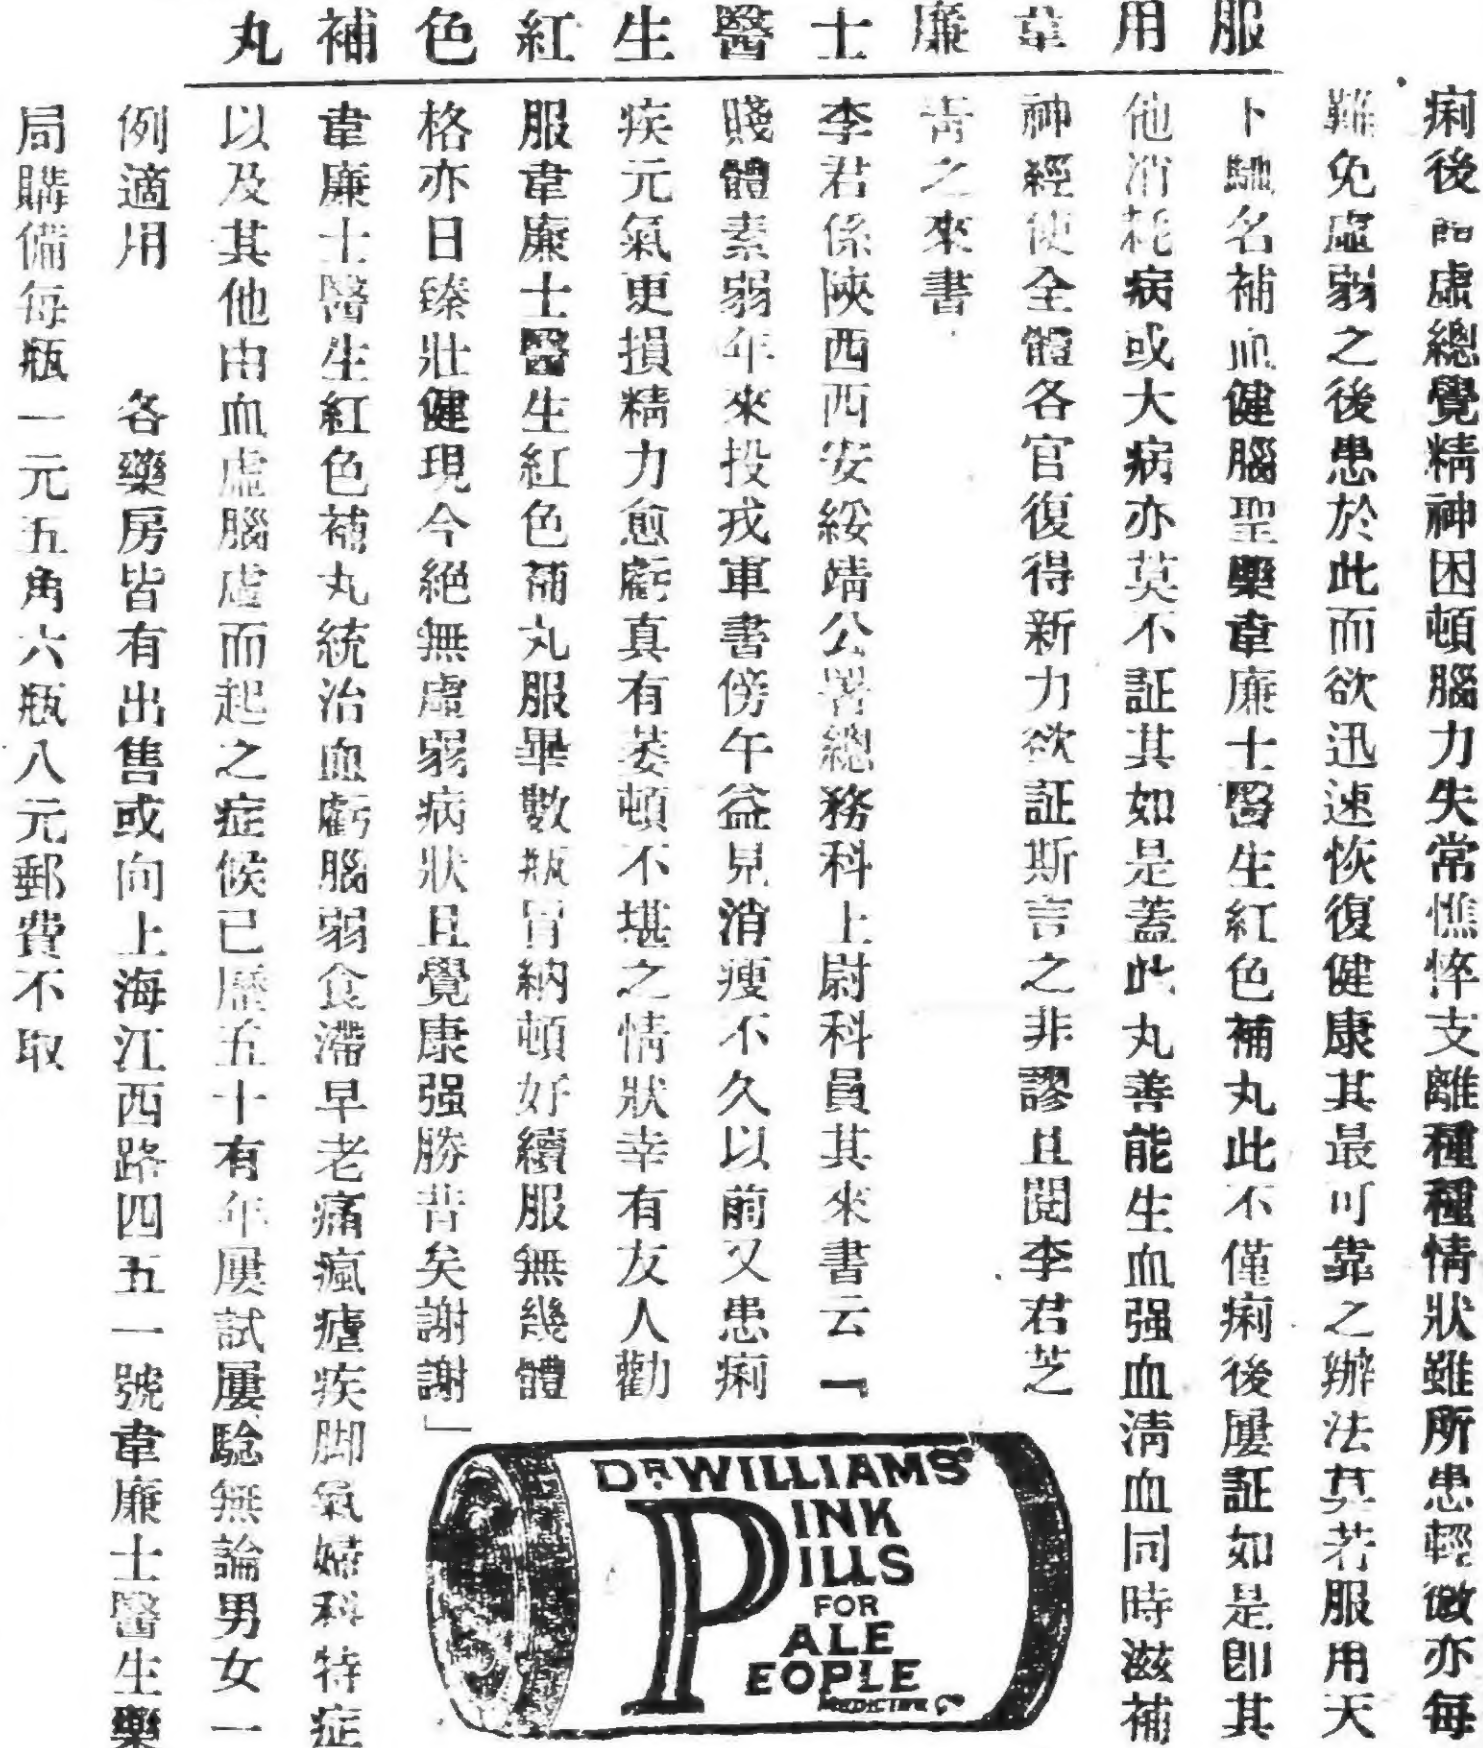 服用韋廉士醫生紅色補丸
痢後血虛總覺精神困頓腦力失常憔悴支離種種情狀雖所患輕微亦每
難免虛弱之後患於此而欲迅速恢復健康其最可靠之辦法莫若服用天
下馳名補血健腦聖藥韋廉士醫生紅色補丸此不僅痢後屢証如是卽其
他消耗病或大病亦莫不証其如是蓋此丸善能生血强血清血同時滋補
神經使全體各官復得新力欲証斯言之非謬且閱李君芝
靑之來書
李君係陝西西安綏靖公署總務科上尉科員其來書云「
賤體素弱年來投戎軍書傍午益見消瘦不久以前又患痢
疾元氣更損精力愈虧真有萎頓不堪之情狀幸有友人勸
服韋廉士醫生紅色補丸服畢數瓶胃納頓好續服無幾體
格亦日臻壯健現今絕無虛弱病狀且覺康强勝昔矣謝謝」
韋廉士醫生紅色補丸統治血虧腦弱食滯早老痛瘋瘧疾脚氣婦科特症
以及其他由血虛腦虛而起之症候已歷五十有年屢試屢驗無論男女一
例適用 各藥房皆有出售或向上海江西路四五一號韋廉士醫生藥
局購備每瓶一元五角六瓶八元郵費不取
DR WILLIAMS'
PINK
PILLS
FOR
PALE
PEOPLE
MEDICINE Co